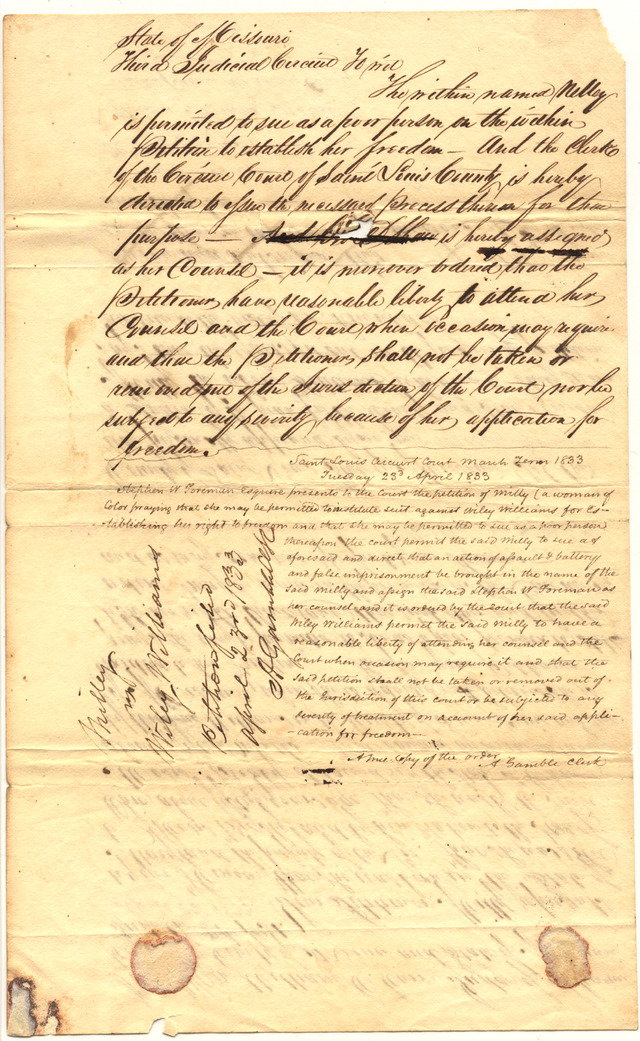 State of Missouri
Third Judicial Circuit To wit
The within named Milley
is permitted to sue as a poor person on the within
Petition to establish her freedom — And the Clerk
of the Circuit Court of Saint Louis County is hereby
directed to issue the necessary process thereon for that
purpose — is hereby assigned
as her Counsel — it is moreover ordered that the
Petitioner have reasonable liberty to attend her
Counsel and the Court when occasion may require
and that the Petitioner shall not be taken or
removed out of the Jurisdiction of the Court nor be
subject to any severity because of her application for
freedom.
Saint Louis Circuit Court March Term 1833
Tuesday 23d April 1833
Stephen W Foreman Esquire presents to the Court the petition of Milly (a woman of
Color praying that she may be permitted to institute suit against Wiley Williams for Es-
tablishing her right to freedom and that she may be permitted to sue as a poor person
thereupon the court permit the said Milly to sue as
aforesaid and direct that an action of assault & battery
and false imprisonment be brought in the name of the
said Milly and assign the said Stephen W Foreman as
her counsel and it is ordered by the court that the said
Wiley Williams permit the said Milly to have a
reasonable liberty of attending her counsel and the
Court when occasion may require it and that the
said petition shall not be taken or removed out of
the Jurisdiction of this court or be subjected to any
severity of treatment on account of her said appli-
-cation for freedom—
A true copy of the order
A Gamble Clerk
Milley
vs
Wiley Williams
Petition filed
April 23rd 1833
A Gamble Clk